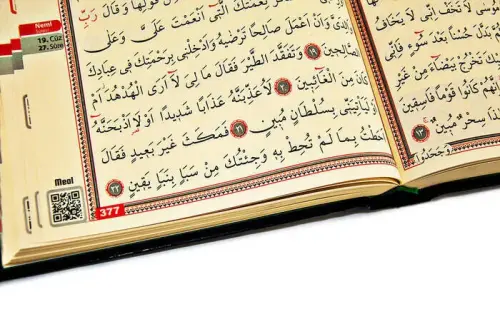 قَوْلِهَا وَقَالَ رَبِّ
نِعْمَتَكَ الَّتٖٓى اَنْعَمْتَ عَلَىَّ وَعَلٰى
وَالِدَىَّ وَاَنْ اَعْمَلَ صَالِحًا تَرْضٰيهُ وَاَدْخِلْنٖى بِرَحْمَتِكَ فٖى عِبَادِكَ
الصَّالِحٖينَ ﴿١٩﴾ وَتَفَقَّدَ الطَّيْرَ فَقَالَ مَا لِىَ لَٓا اَرَى الْهُدْهُدَ اَمْ
كَانَ مِنَ الْغَٓائِبٖينَ ﴿٢٠﴾ لَاُعَذِّبَنَّهُ عَذَابًا شَدٖيدًا اَوْ لَاَاذْبَحَنَّهُٓ
اَوْ لَيَاْتِيَنّٖى بِسُلْطَانٍ مُبٖينٍ ﴿٢١﴾ فَمَكَثَ غَيْرَ بَعٖيدٍ فَقَالَ
اَحَطْتُ بِمَا لَمْ تُحِطْ بِهٖ وَجِئْتُكَ مِنْ سَبَاٍ بِنَبَاٍ يَقٖينٍ ﴿٢٢﴾
Neml
19. Cüz
27. Sûre
Meal
377
مُوسٰى لَا تَخَفْ اِنّٖى لَا يَخَافُ
بَدَّلَ حُسْنًا بَعْدَ سُٓوءٍ فَاِنّٖى
تَخْرُجْ بَيْضَٓاءَ مِنْ غَيْرِ
اِنَّهُمْ كَانُوا قَوْمًا فَاسِقٖينَ
سِحْرٌ مُبٖينٌ ﴿١٣﴾
وَجَحَدُوا